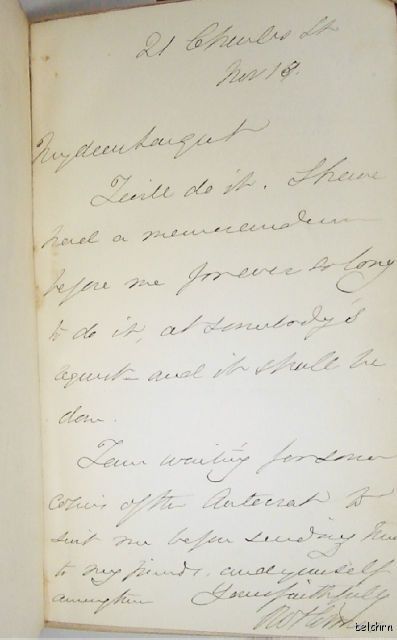 21 Charles St
Nov 18.
My dear Sargent
I will do it. I have
had a memorandum
before me for ever so long
to do it, at somebody's
request – and it shall be
done.
I am waiting for some
copies of the Autocrat to
sent me before sending them
to my friends, and yourself
among them
Yours faithfully
O W Holmes
telchrn